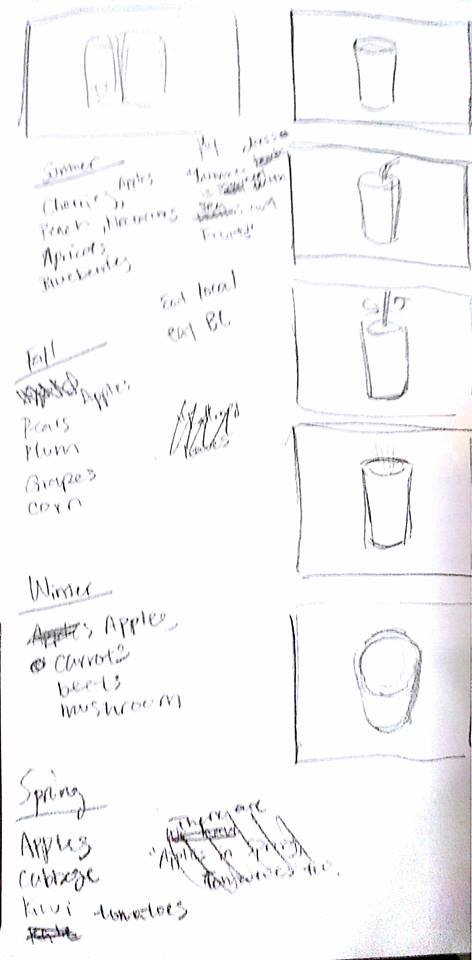 Summer
Cherries, Apples
Peach, Nectarines
Apricots
Blueberries
My
Summer
is
with
Eat local
eat BC
Fall
Apples
Pears
Plum
Grapes
corn
Winter
Apples Apples
carrots
beets
mushroom
Spring
Apples
cabbage
kiwi tomatoes
They are
"Apples in